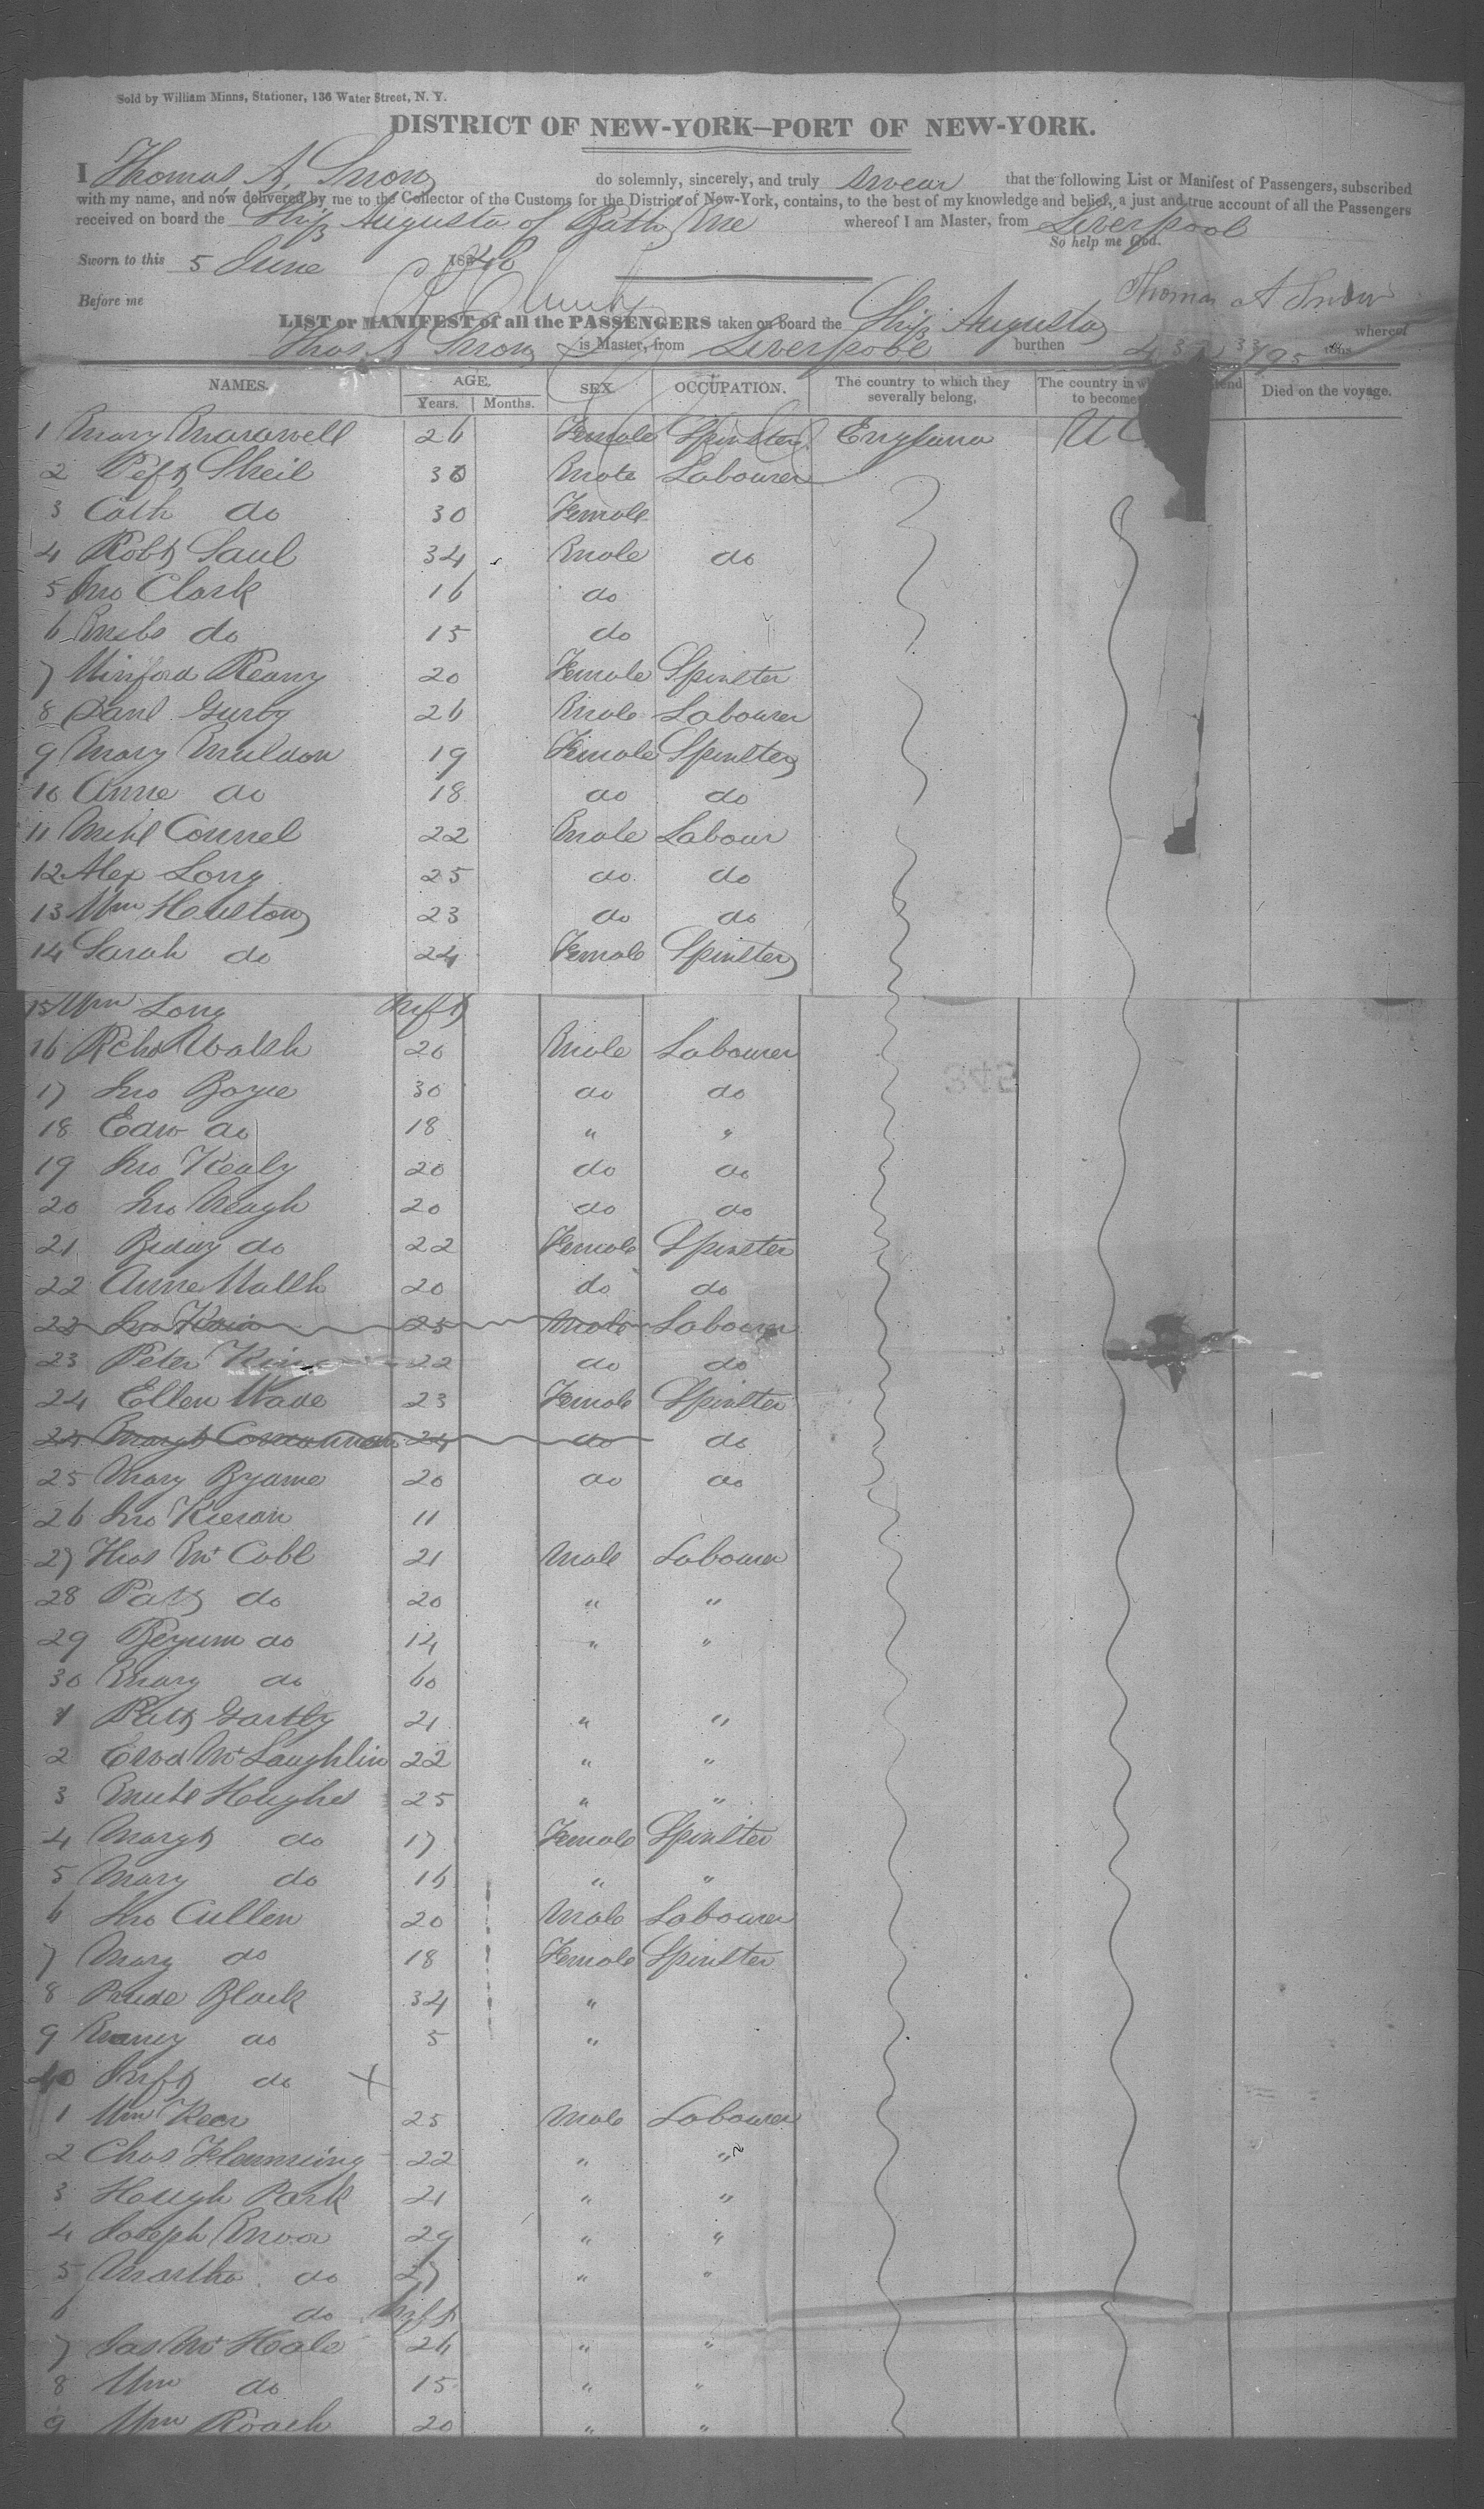 Sold by William Minns, Stationer, 136 Water Street, N. Y.
DISTRICT OF NEW-YORK—PORT OF NEW-YORK.
I Thomas A. Snow do solemnly, sincerely, and truly swear that the following List or Manifest of Passengers, subscribed
with my name, and now delivered by me to the Collector of the Customs for the District of New-York, contains, to the best of my knowledge and belief, a just and true account of all the Passengers
received on board the Ship Augusta of Bath Me whereof I am Master, from Liverpool
So help me God.
Sworn to this 5 June 1846
Thomas A Snow
Before me
LIST or MANIFEST of all the PASSENGERS taken on board the Ship Augusta whereof
Thos A Snow is Master, from Liverpool burthen 33/95 tons
NAMES. AGE. SEX OCCUPATION. The country to which they severally belong. The country in to become Died on the voyage.
Years. Months.
1 Mary 26 Female Spinster England U
2 Sheil 30 Male Labourer
3 Cath do 30 Female
4 Robt Saul 34 Male do
5 Jno Clark 16 do
6 do 15 do
7 Winford Reany 20 Female Spinster
8 Danl 26 Male Labourer
9 Mary Muldon 19 Female Spinster
10 Anne do 18 do do
11 Michl Connel 22 Male Labour
12 Alex Long 25 do do
13 Wm Houston 23 do do
14 Sarah do 24 Female Spinster
15 Wm Long Inft
16 Richd Walsh 20 Male Labourer
17 Jno Boyle 30 do do
18 Edw do 18 " "
19 Jno Kealy 20 do do
20 Jno Neagh 20 do do
21 Biddy do 22 Female Spinster
22 Anne Walsh 20 do do
23 Jno 25 Male Labourer
23 Peter King 22 do do
24 Ellen Wade 23 Female Spinster
24 Margt 24 do do
25 Mary Byrne 20 do do
26 Jno Kieran 11
27 Thos Mc Cabe 21 Male Labourer
28 Patt do 20 " "
29 do 14 " "
30 Mary do 60
1 Patt Gartly 21 " "
2 Mc Laughlin 22 " "
3 Michl Hughes 25 " "
4 Margt do 17 Female Spinster
5 Mary do 16 " "
6 Jno Cullen 20 Male Labourer
7 Mary do 18 Female Spinster
8 Black 34 "
9 do 5 "
40 Inft do X
1 Wm Kerr 25 Male Labourer
2 Chas Flemming 22 " "
3 Hough Park 21 " "
4 Joseph Moor 29 " "
5 Martha do 27 " "
6 do Inft
7 Jas Mc Hale 26 " "
8 Wm do 15 " "
9 Wm Roach 20 " "